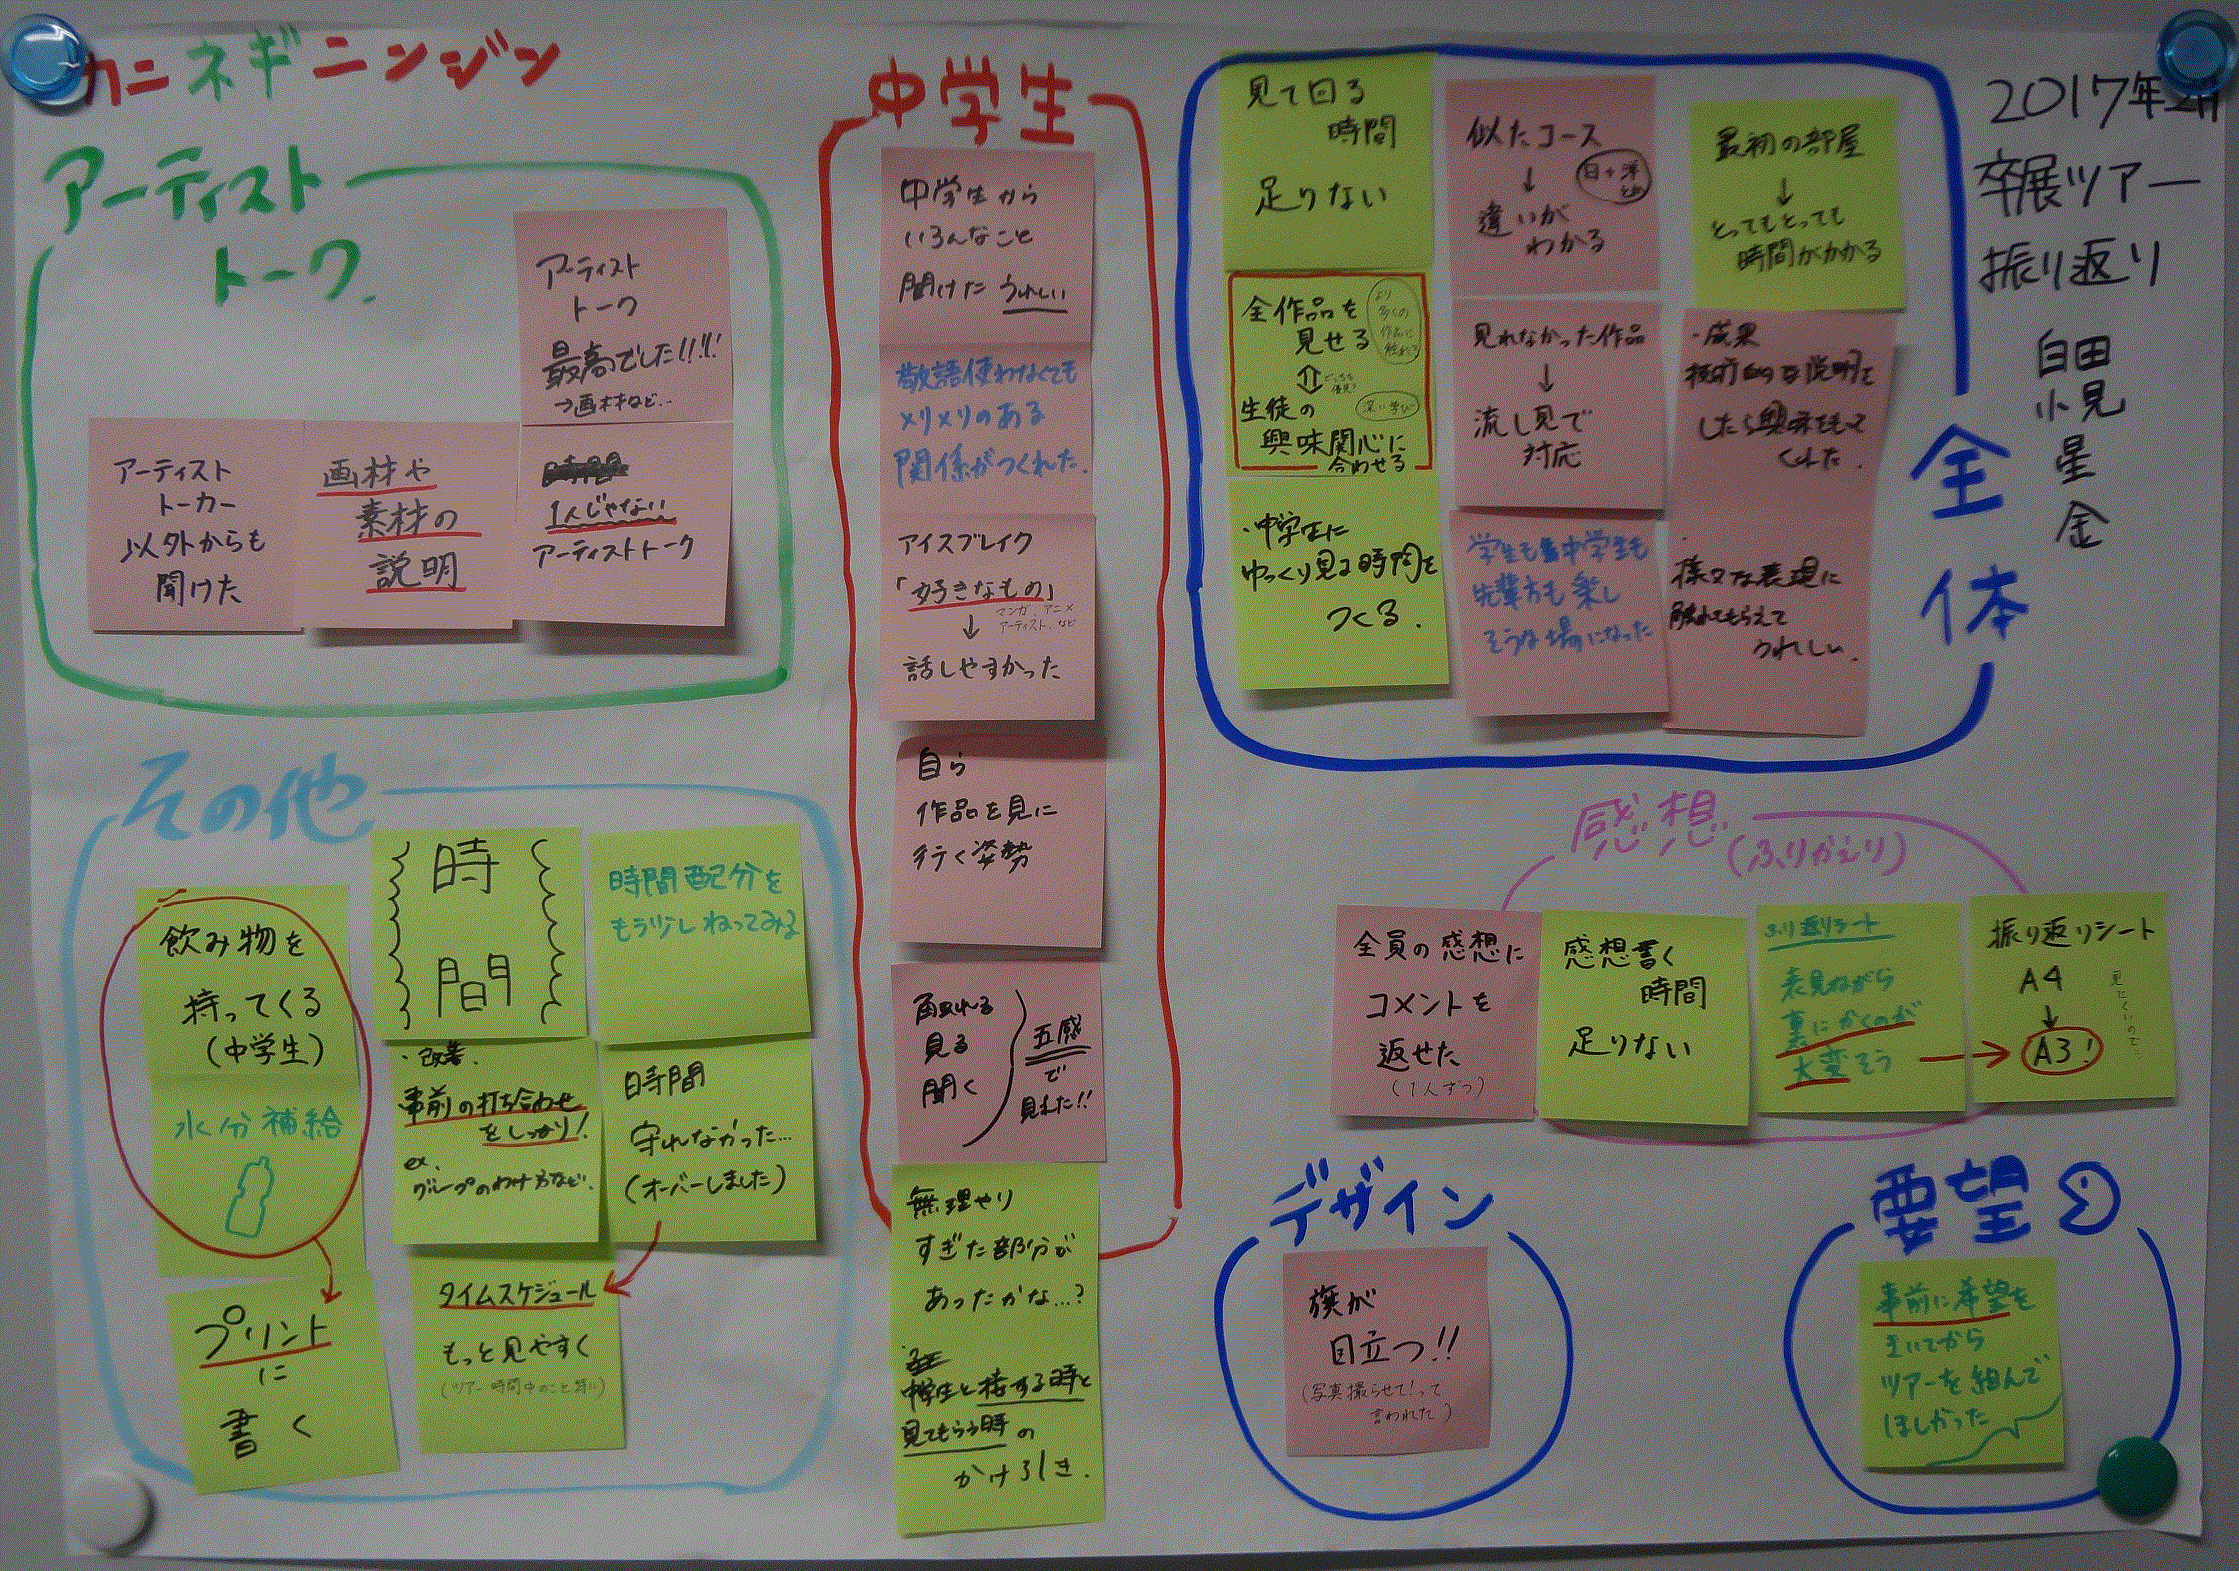 カニネギニンジン
アーティスト
トーク.
アーティスト
トーク
最高でした!!!!
→画材など...
アーティスト
トーカー
以外からも
聞けた
画材や
素材の
説明
1人じゃない
アーティストトーク
中学生
中学生から
いろんなこと
聞けた うれしい
敬語使わなくても
メリメリのある
関係がつくれた.
アイスブレイク
「好きなもの」
マンガ、アニメ
アーティスト、など
↓
話しやすかった
自ら
作品を見に
行く姿勢
触れる
見る
聞く
五感
で
見れた!!
無理やり
すぎた部分が
あったかな...?
中学生と接する時と
見てもらう時の
かけ引き.
全体
見て回る
時間
足りない
似たコース
↓
違いが
わかる
最初の部屋
↓
とってもとっても
時間がかかる
全作品を
見せる
より
多くの
作品に
触れる
⇕
生徒の
興味関心に
合わせる
深い学び
見れなかった作品
↓
流し見で
対応
・成果
技術的な説明を
したら興味をもって
くれた.
・中学生に
ゆっくり見る時間を
つくる.
学生も中学生も
先輩方も楽し
そうな場になった
様々な表現に
触れてもらえて
うれしい.
2017年2月
卒展ツアー
振り返り
白田
小見
星
金
その他
飲み物を
持ってくる
(中学生)
水分補給
プリント
に
書く
時
間
時間配分を
もう少しねってみる
・改善.
事前の打ち合わせ
をしっかり!
ex.
グループのわけ方など.
時間
守れなかった...
(オーバーしました)
タイムスケジュール
もっと見やすく
(ツアー時間中のこと特に)
感想
(ふりかえり)
全員の感想に
コメントを
返せた
(1人ずつ)
感想書く
時間
足りない
ふり返りシート
表見ながら
裏にかくのが
大変そう
振り返りシート
A4
↓
A3!
見にくいので!
デザイン
旗が
目立つ!!
(写真撮らせて!って
言われた)
要望
事前に希望を
きいてから
ツアーを組んで
ほしかった